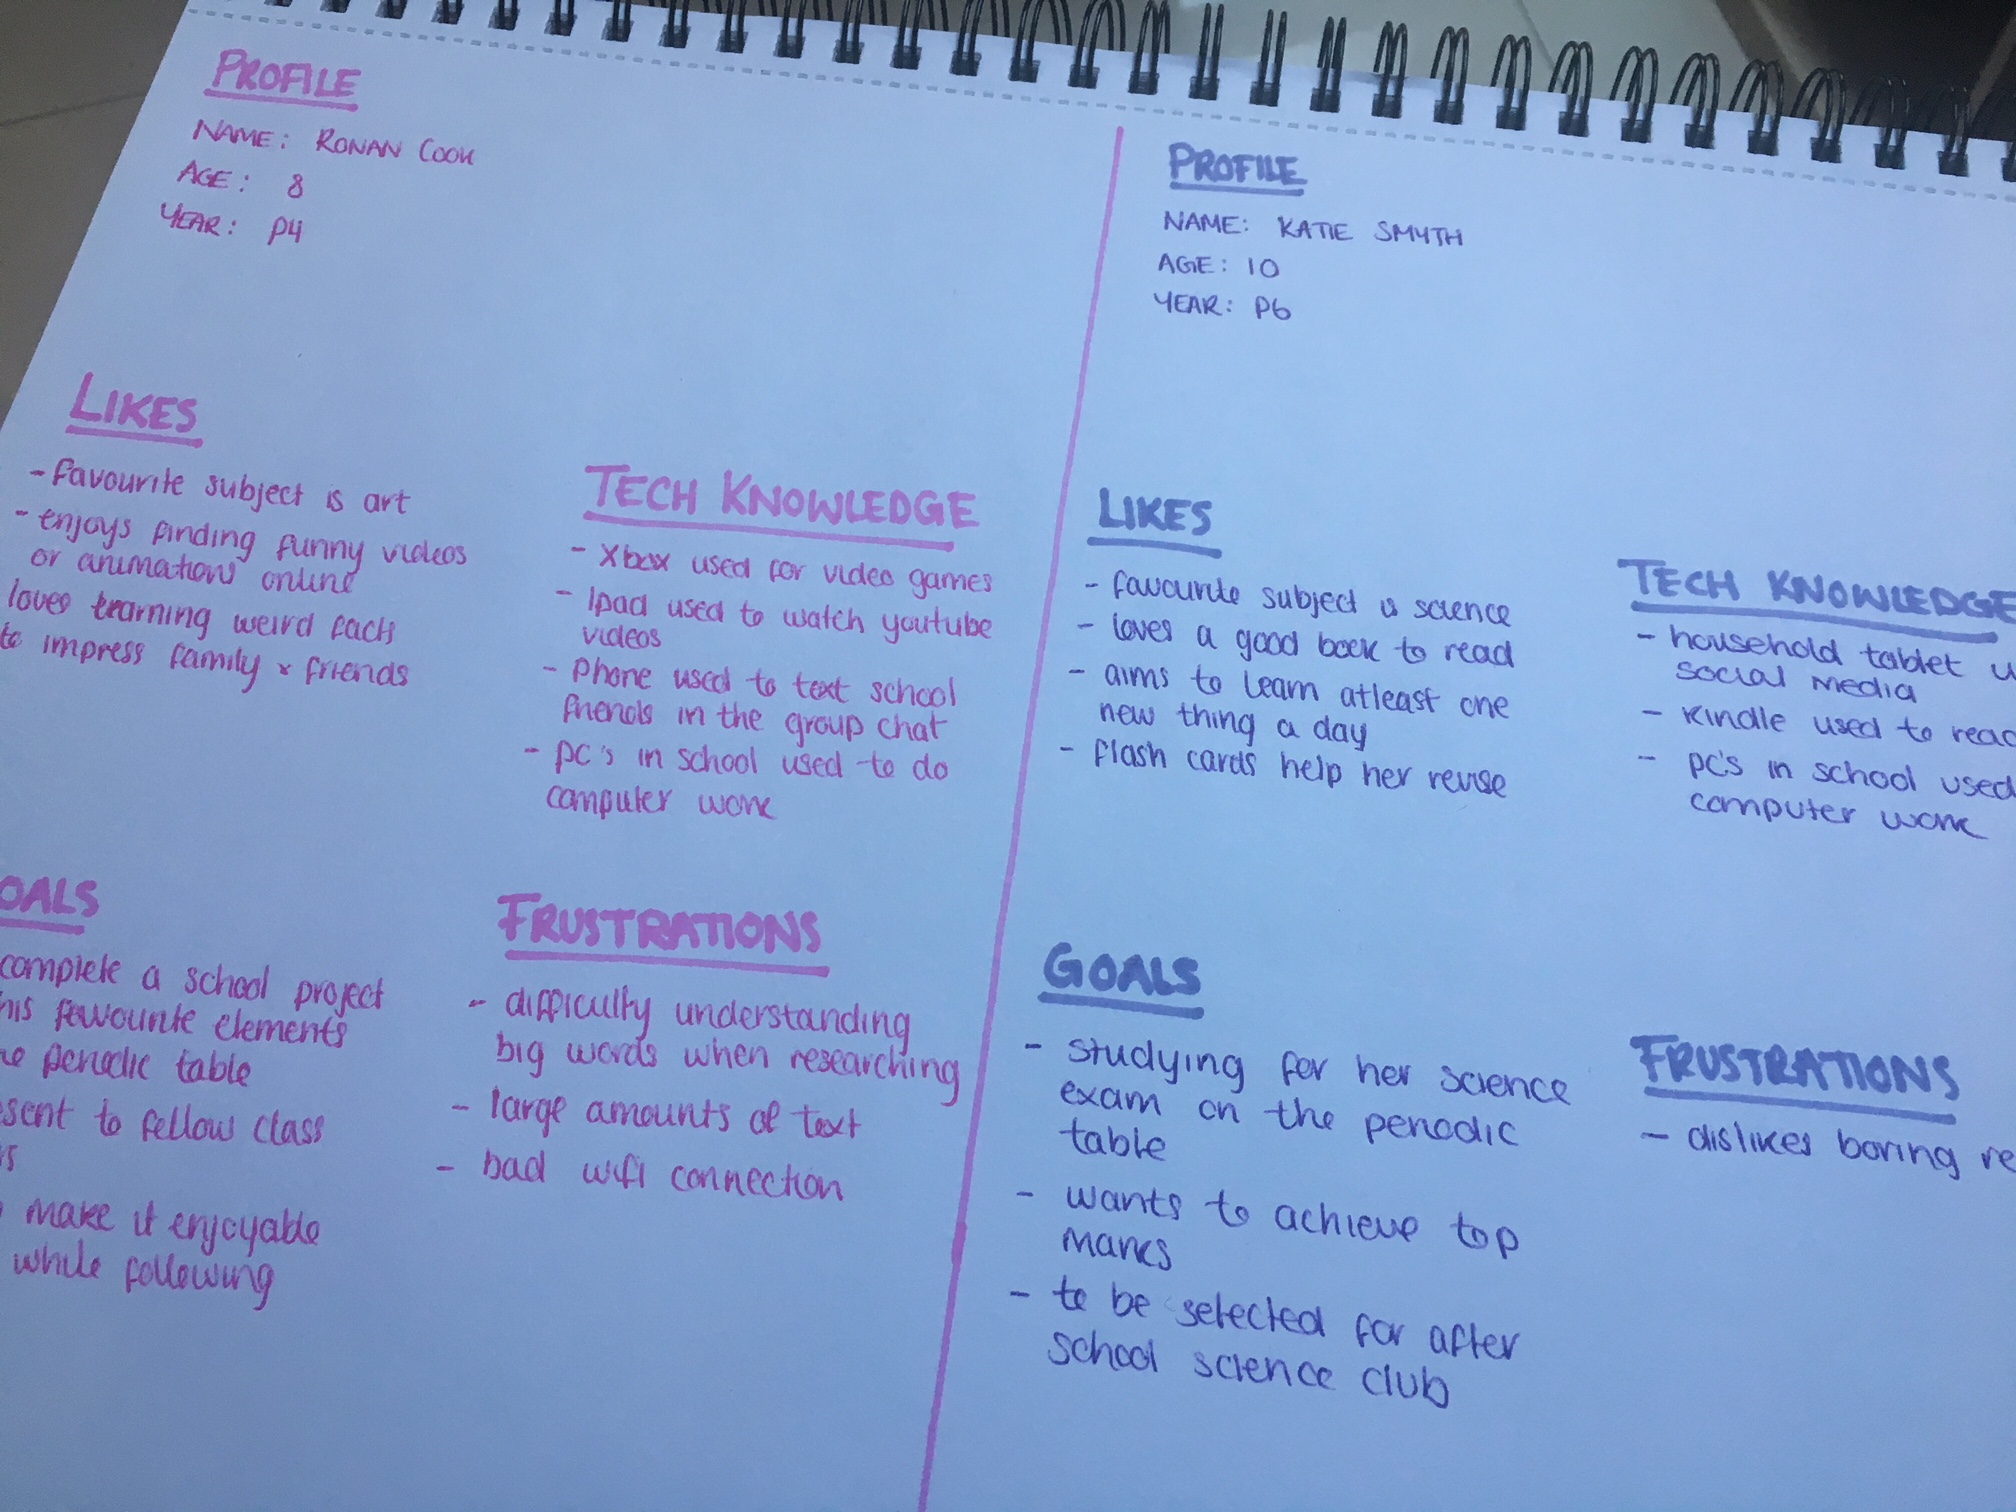 PROFILE
NAME: RONAN COOK
AGE: 8
YEAR: P4
LIKES
- favourite subject is art
- enjoys finding funny videos
or animations online
loves learning weird facts
to impress family & friends
TECH KNOWLEDGE
- Xbox used for video games
- Ipad used to watch youtube
videos
- Phone used to text school
friends in the group chat
- pc's in school used to do
computer work
OALS
complete a school project
his favourite elements
periodic table
sent to fellow class
make it enjoyable
while following
FRUSTRATIONS
- difficulty understanding
big words when researching
- large amounts of text
- bad wifi connection
PROFILE
NAME: KATIE SMYTH
AGE: 10
YEAR: P6
LIKES
- favourite subject is science
- loves a good book to read
- aims to learn atleast one
new thing a day
- flash cards help her revise
TECH KNOWLEDGE
- household tablet u
social media
- Kindle used to read
- pc's in school used
computer work
GOALS
- studying for her science
exam on the periodic
table
- wants to achieve top
marks
- to be selected for after
school science club
FRUSTRATIONS
- dislikes boring re